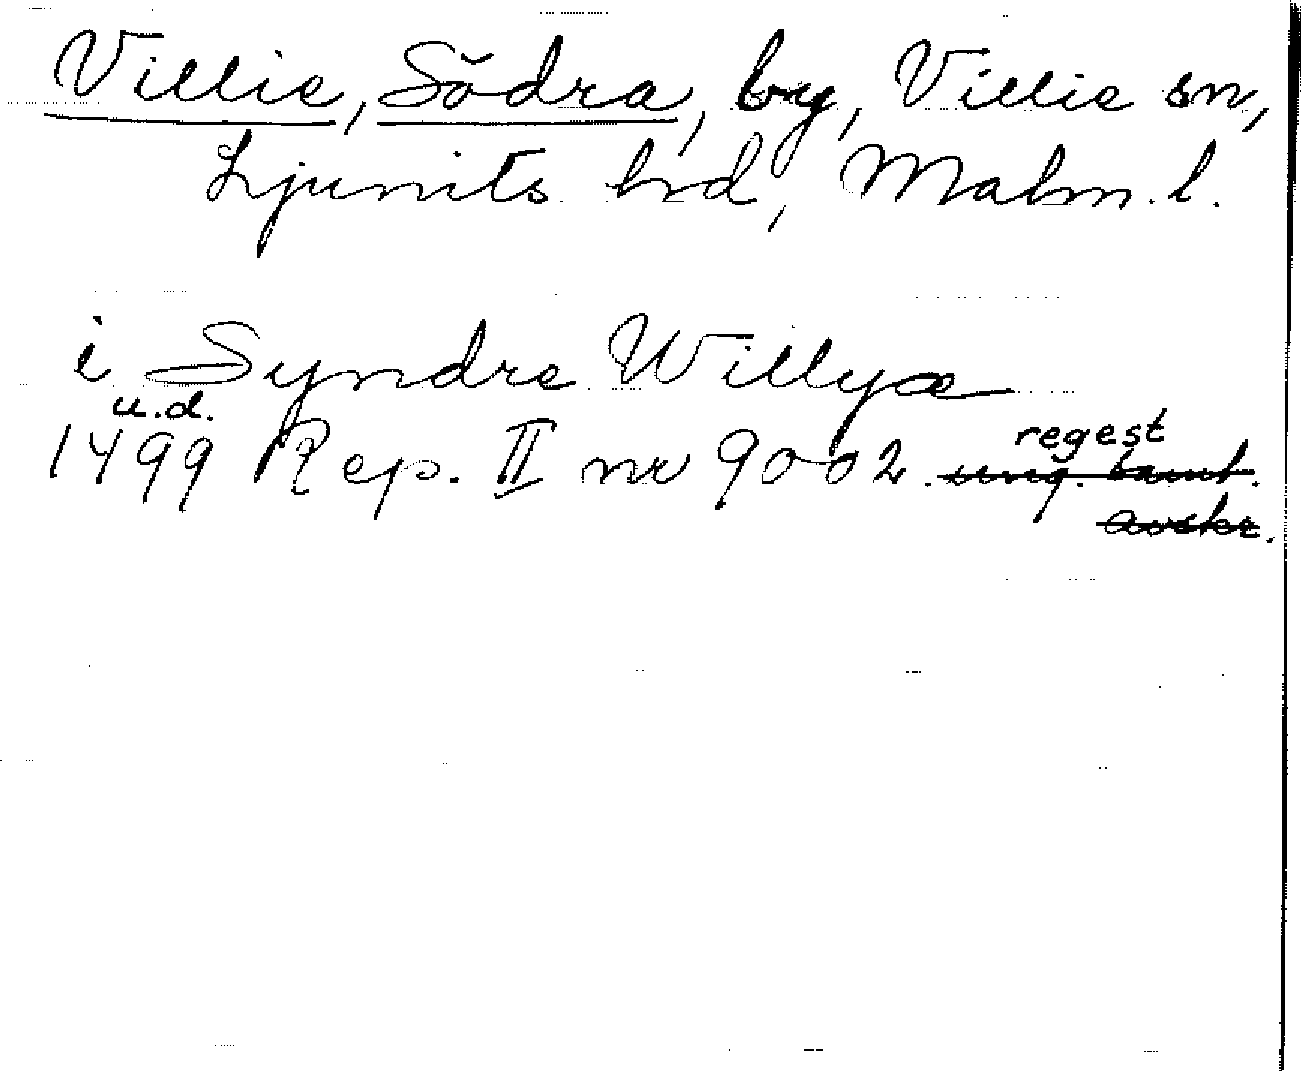 Villie, Södra, by, Villie sn,
Ljunits hd, Malm. l.
i Syndre Willyæ
u.d.
1499 Rep. II nr 9002. regest
ung. samt.
avskr.